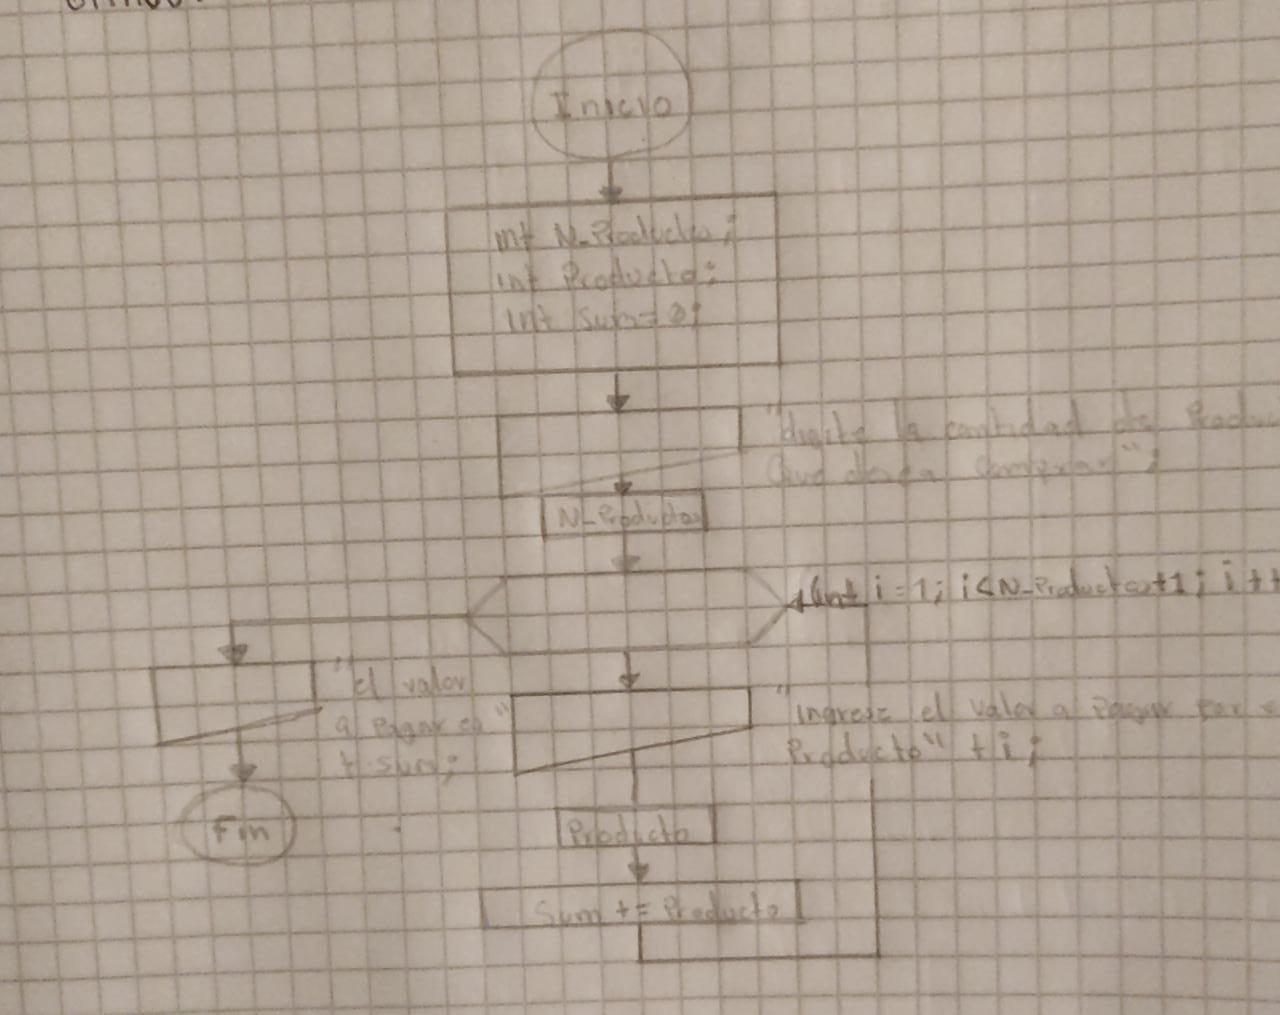 Inicio
int N_Productos;
int Producto;
int Sum=0;
"digite la cantidad de Produc
Que desea Comprar";
N_Productos
(int i=1; i<N_Productos+1; i++
"el valor
a Pagar es"
+ sum;
"ingrese el valor a Pagar por
Producto" + i;
Fin
Producto
Sum += Producto